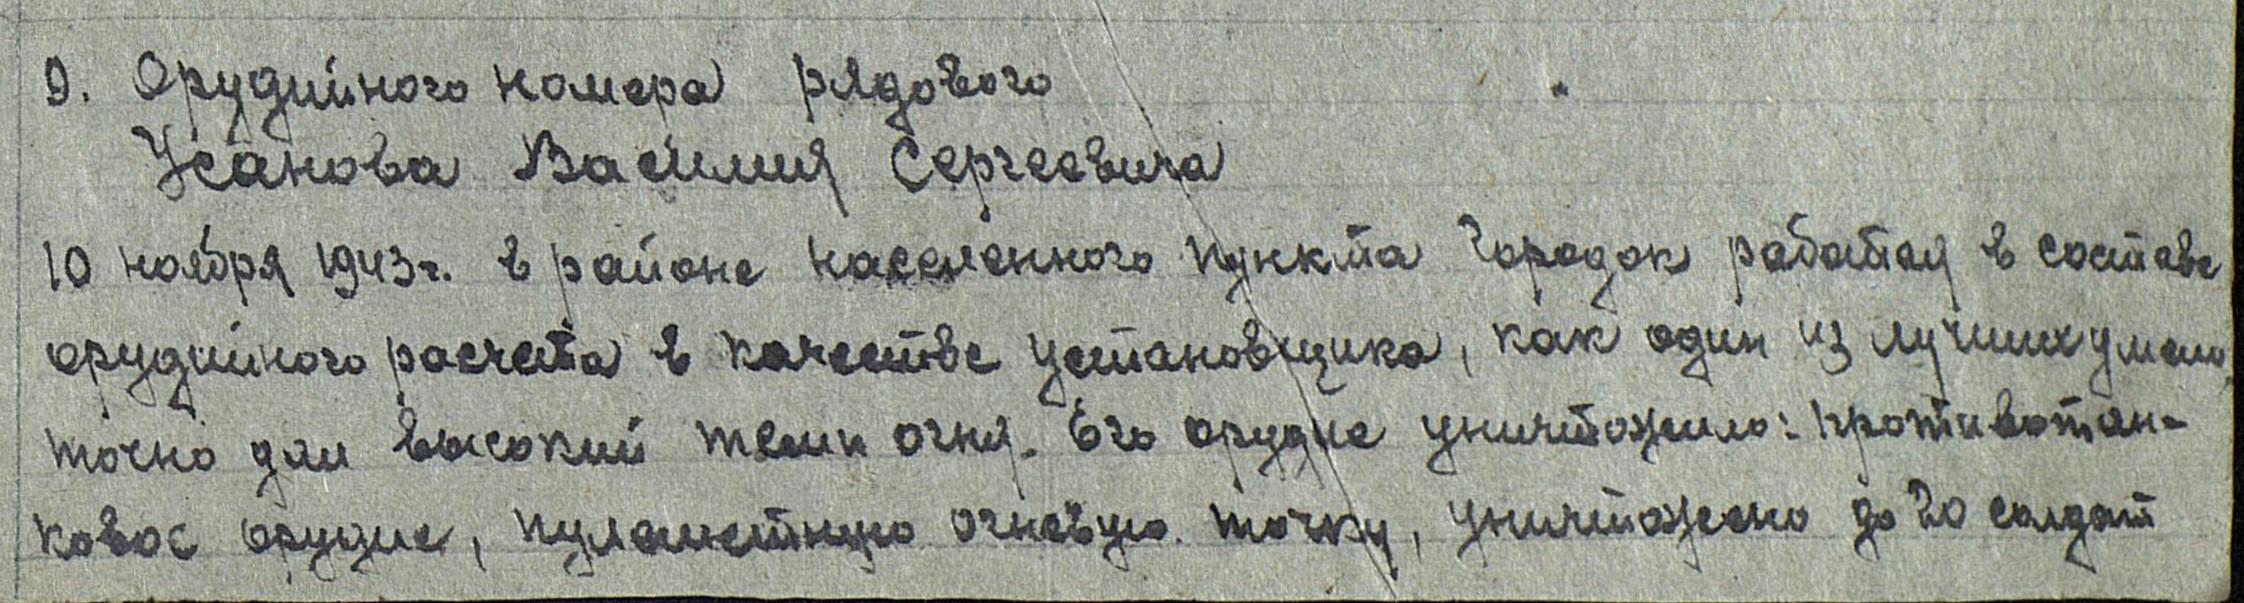 9. Орудийного номера рядового
Усанова Василия Сергеевича
10 ноября 1943г. в районе населенного пункта Городок работая в составе
орудийного расчета в качестве установщика, как один из лучших умело,
точно дал высокий темп огня. Его орудие уничтожило: противотан-
ковое орудие, пулеметную огневую точку, уничтожено до 20 солдат